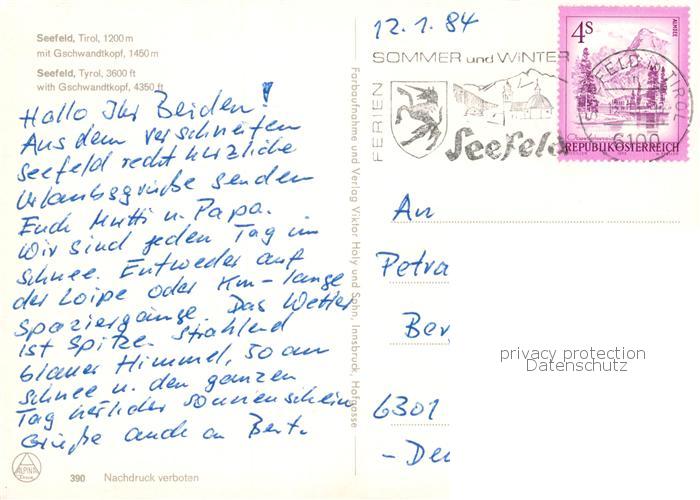 Seefeld, Tirol, 1200 m
mit Gschwandtkopf, 1450 m
Seefeld, Tyrol, 3600 ft
with Gschwandtkopf, 4350 ft
Hallo Ihr Beiden!
Aus dem verschneiten
Seefeld recht herzliche
Urlaubsgrüße senden
Euch Mutti u. Papa.
Wir sind jeden Tag im
Schnee. Entweder auf
der Loipe oder Km-lange
Spaziergänge. Das Wetter
ist Spitze. Strahlend
blauer Himmel, 50 cm
Schnee u. den ganzen
Tag herlicher Sonnenschein
Grüße auch an Bert.
ALPINA
390 Nachdruck verboten
Farbaufnahme und Verlag Viktor Holy und Sohn, Innsbruck, Hofgasse
12.1.84
SOMMER und WINTER
FERIEN
Seefeld
SEEFELD IN TIROL
6100
4 S
ALMSEE
REPUBLIK ÖSTERREICH
An
Petra
Ber
6301
- Deu
privacy protection
Datenschutz